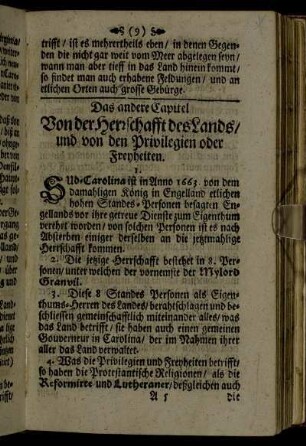 (9)
trifft/ ist es mehrertheils eben/ in denen Gegen-
den die nicht gar weit vom Meer abgelegen seyn/
wann man aber tieff in das Land hinein kommt/
so findet man auch erhabene Feldungen/ und an
etlichen Orten auch grosse Gebürge.
Das andere Capitel
Von der Herrschafft des Lands/
und von den Privilegien oder
Freyheiten.
1.
SUd-Carolina ist in Anno 1663. von dem
damahligen König in Engelland etlichen
hohen Standes-Personen besagten En-
gellands vor ihre getreue Dienste zum Eigenthum
verehrt worden/ von solchen Personen ist es nach
Absterben einiger derselben an die jetztmahlige
Herrschafft kommen.
2. Die jetzige Herrschafft bestehet in 8. Per-
sonen/ unter welchen der vornemste der Mylord
Granvil.
3. Diese 8 Standes Personen als Eigen-
thums-Herren des Landes/ berahtschlagen und be-
schliessen gemeinschafftlich miteinander alles/ was
das Land betrifft/ sie haben auch einen gemeinen
Gouverneur in Carolina/ der im Nahmen ihrer
aller das Land verwaltet.
4. Was die Privilegien und Freyheiten betrifft/
so haben die Protestantische Religionen/ als die
Reformirte und Lutheraner/ deßgleichen auch
A 5 die